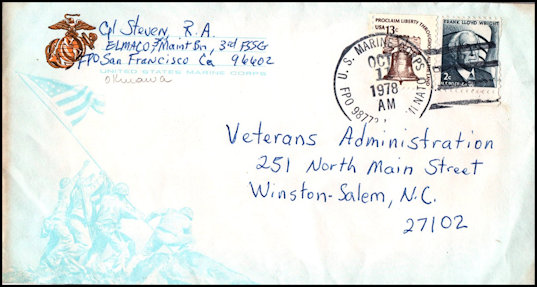 Cpl Steven, R.A.
ELMACO, Maint Bn, 3rd FSSG
FPO San Francisco Ca 96602
UNITED STATES MARINE CORPS
okinawa
PROCLAIM LIBERTY THROUGHOUT
USA 13c
FRANK LLOYD WRIGHT
2c
U.S. MARINE CORPS
OCT
1978
AM
FPO 9877
Veterans Administration
251 North Main Street
Winston-Salem, N.C.
27102